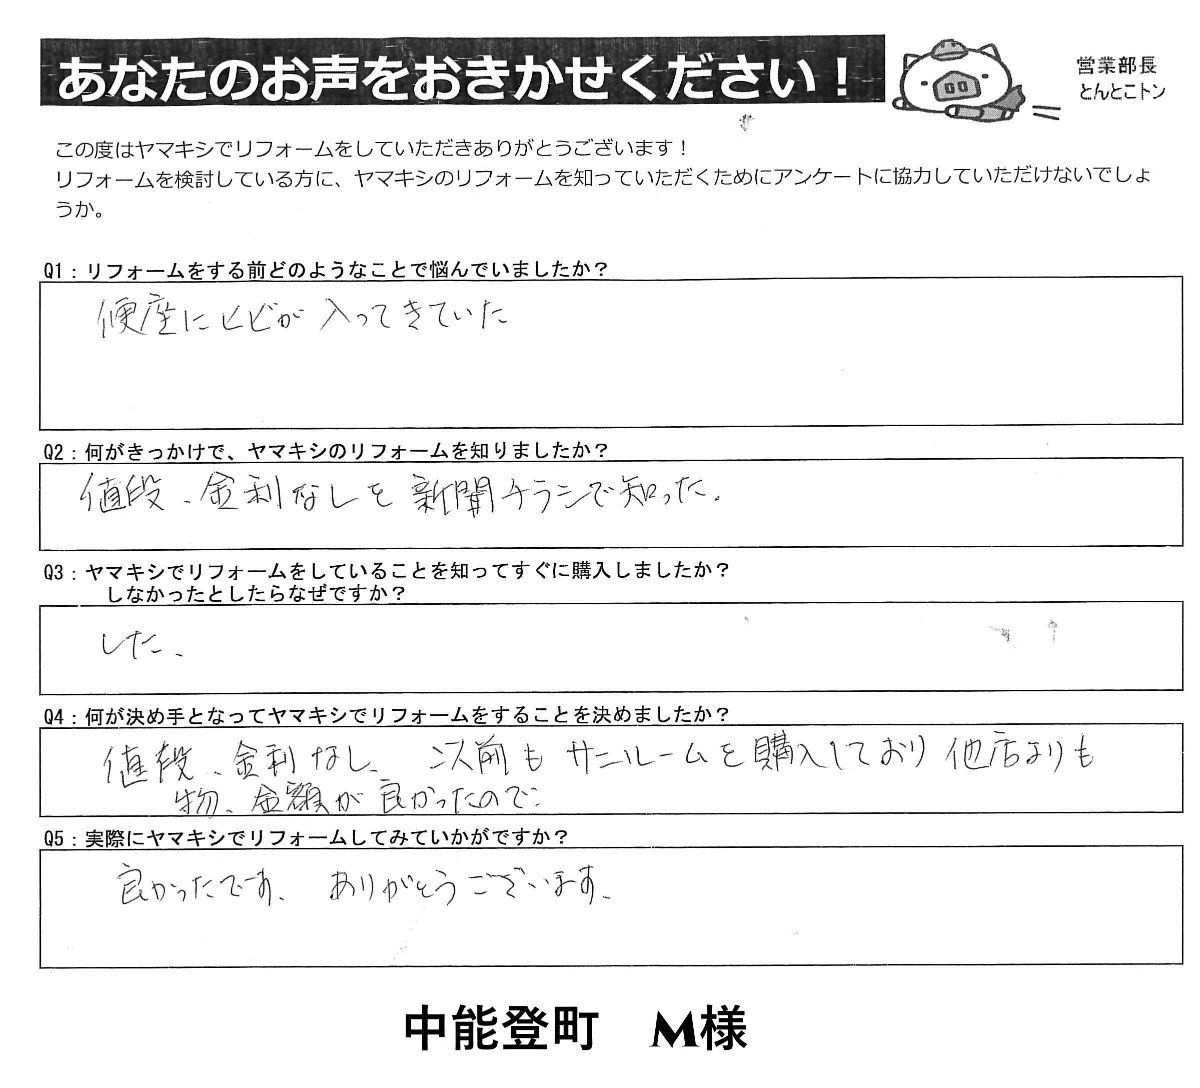 あなたのお声をおきかせください！
営業部長
とんとこトン
この度はヤマキシでリフォームをしていただきありがとうございます！
リフォームを検討している方に、ヤマキシのリフォームを知っていただくためにアンケートに協力していただけないでしょ
うか。
Q1：リフォームをする前どのようなことで悩んでいましたか？
便座にヒビが入ってきていた
Q2：何がきっかけで、ヤマキシのリフォームを知りましたか？
値段、金利なしを新聞チラシで知った。
Q3：ヤマキシでリフォームをしていることを知ってすぐに購入しましたか？
しなかったとしたらなぜですか？
した、
Q4：何が決め手となってヤマキシでリフォームをすることを決めましたか？
値段、金利なし、以前もサンルームを購入しており他店よりも
物、金額が良かったので
Q5：実際にヤマキシでリフォームしてみていかがですか？
良かったです、ありがとうございます、
中能登町　M様